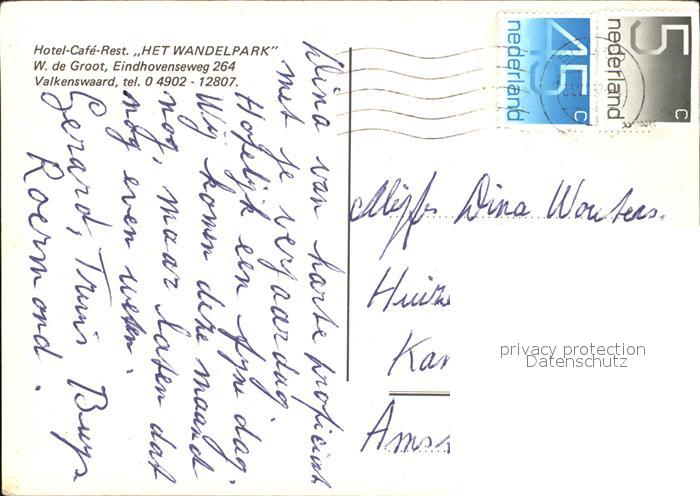 Hotel-Café-Rest. „HET WANDELPARK"
W. de Groot, Eindhovenseweg 264
Valkenswaard, tel. 0 4902 - 12807.
Dina van harte proficiat
met je verjaardag.
Hopelijk een fijne dag.
Wij komen deze maand
nog, maar laten dat
nog even weten.
Gerard, Truus Buys
Roermond.
45 c
nederland
5 c
nederland
Mejfr. Dina Wouters.
Huize
Kan
Ams
privacy protection
Datenschutz